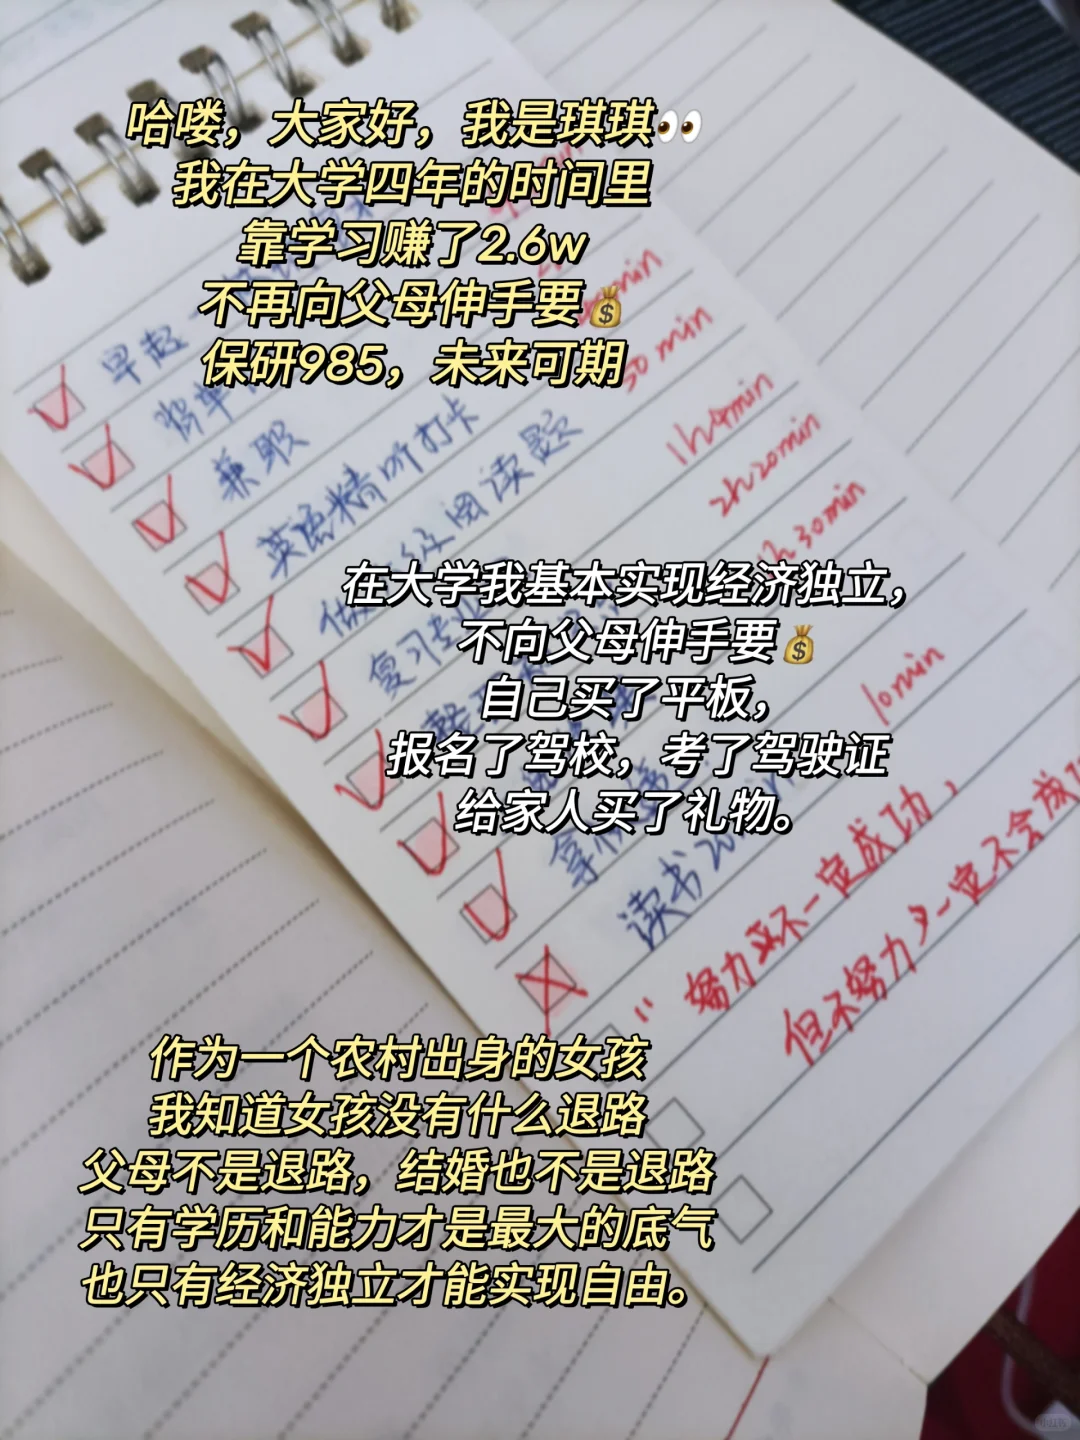 哈喽，大家好，我是琪琪👀
我在大学四年的时间里
靠学习赚了2.6w
不再向父母伸手要💰
保研985，未来可期
早起
兼职
英语精听打卡
级阅读题
复习专业
50 min
1h4min
2h20min
1h30min
10min
在大学我基本实现经济独立，
不向父母伸手要💰
自己买了平板，
报名了驾校，考了驾驶证
给家人买了礼物。
拿快递
读书20
"努力不一定成功，
但不努力一定不会成功
作为一个农村出身的女孩
我知道女孩没有什么退路
父母不是退路，结婚也不是退路
只有学历和能力才是最大的底气
也只有经济独立才能实现自由。
小红书